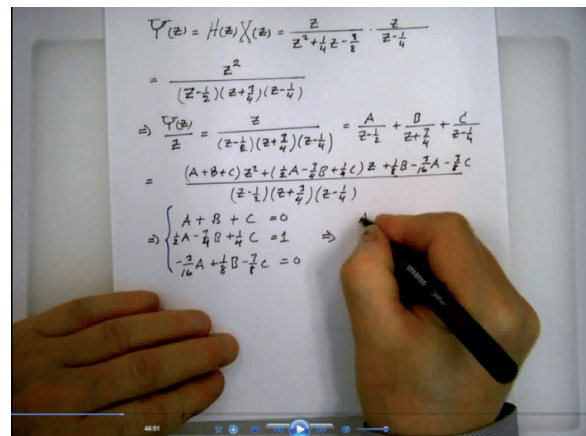 Y(z) = H(z) X(z) = z / (z² + 1/4 z - 3/8) · z / (z - 1/4)
= z² / ((z - 1/2)(z + 3/4)(z - 1/4))
⇒ Y(z)/z = z / ((z - 1/2)(z + 3/4)(z - 1/4)) = A/(z - 1/2) + B/(z + 3/4) + C/(z - 1/4)
= ((A+B+C) z² + (1/2 A - 3/4 B + 1/4 C) z + 1/8 B - 3/16 A - 3/8 C) / ((z - 1/2)(z + 3/4)(z - 1/4))
A + B + C = 0
⇒ { 1/2 A - 3/4 B + 1/4 C = 1 ⇒
-3/16 A + 1/8 B - 3/8 C = 0
44:51